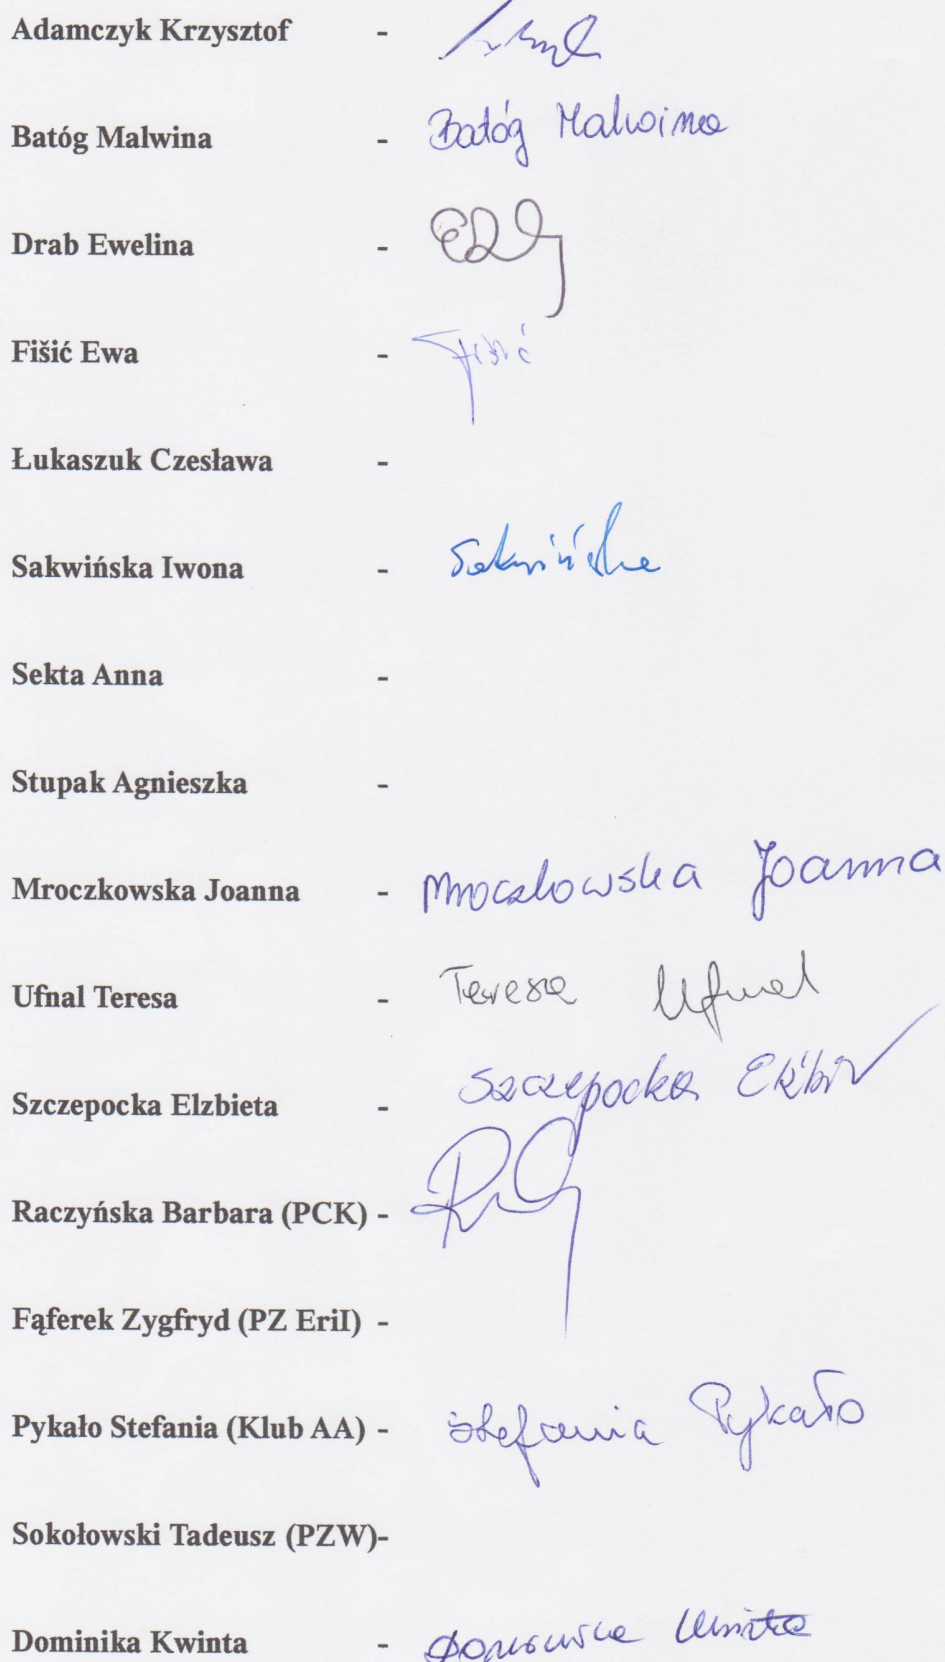 Adamczyk Krzysztof -
Batóg Malwina - Batóg Malwina
Drab Ewelina -
Fišić Ewa - Fišić
Łukaszuk Czesława -
Sakwińska Iwona - Sakwińska
Sekta Anna -
Stupak Agnieszka -
Mroczkowska Joanna - Mroczkowska Joanna
Ufnal Teresa - Teresa Ufnal
Szczepocka Elzbieta - Szczepocka
Raczyńska Barbara (PCK) -
Fąferek Zygfryd (PZ EriI) -
Pykało Stefania (Klub AA) - Stefania Pykało
Sokołowski Tadeusz (PZW)-
Dominika Kwinta - Dominika Kwinta